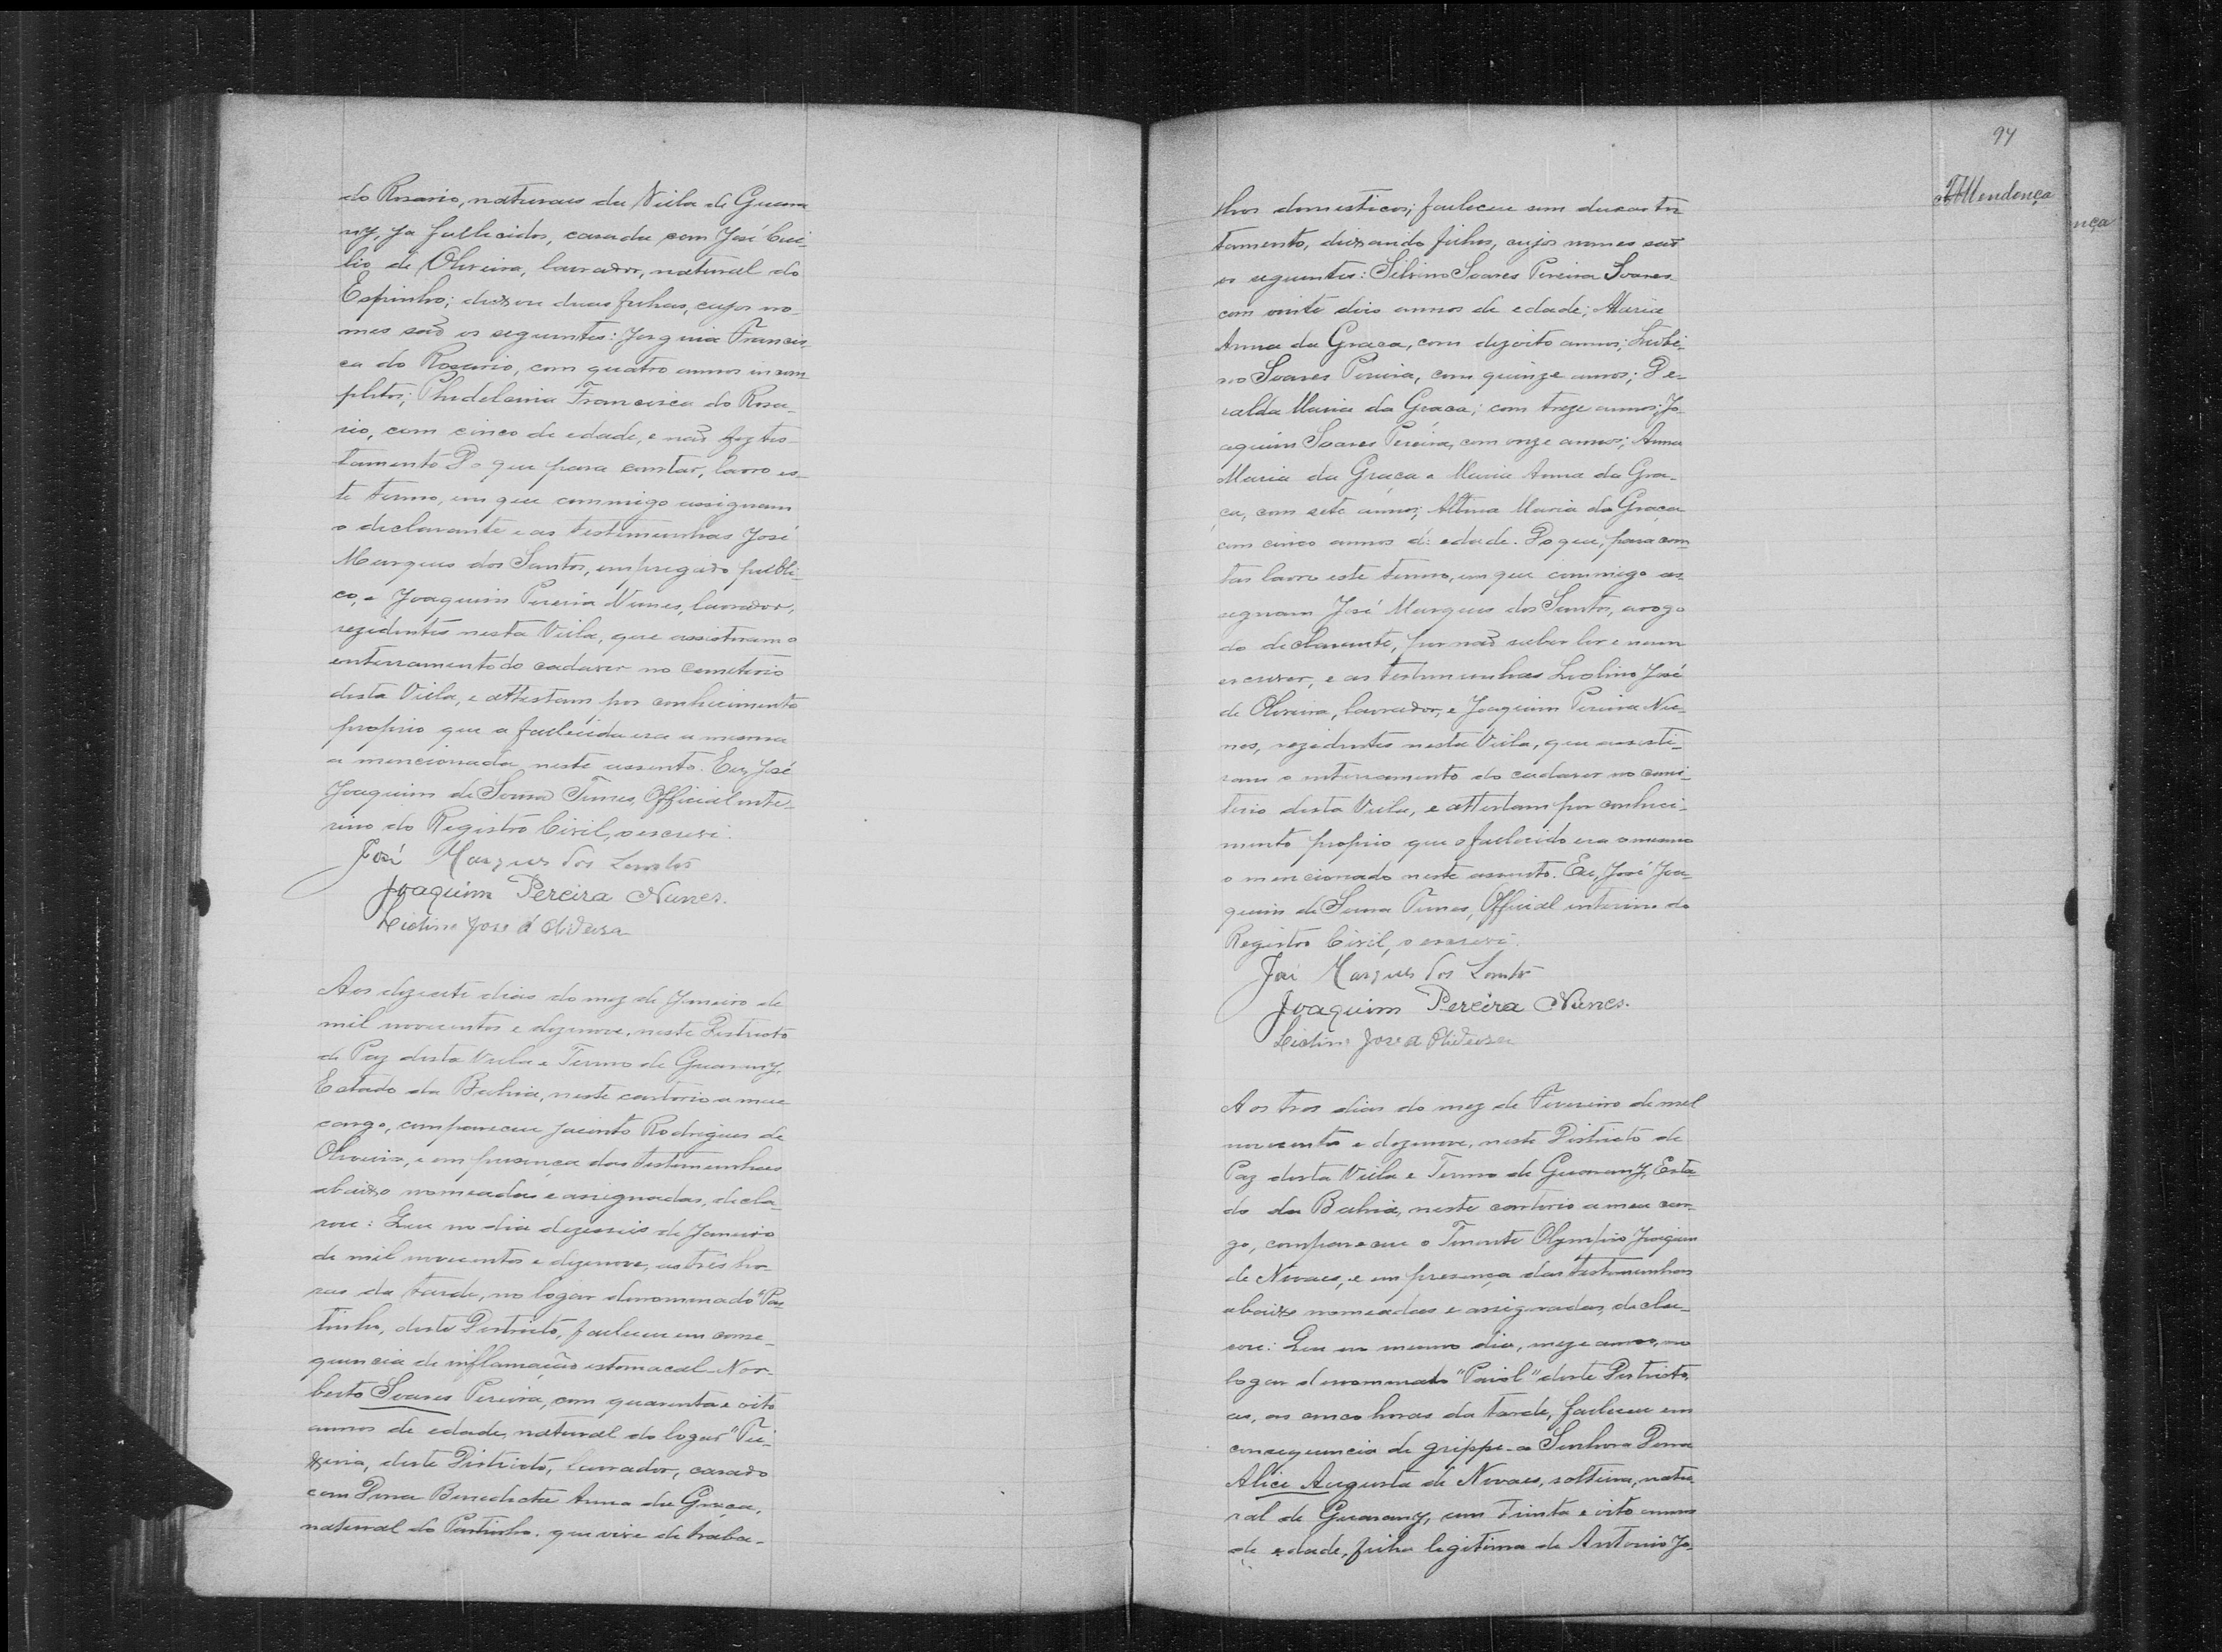 do Rosario, naturaes da Villa de Guara
ny, ja fallecidos, casada com José
lio de Oliveira, lavrador, natural do
Espinho; deixou duas filhas, cujos no-
mes saõ os seguintes: Francis-
ca do Rosario, com quatro annos incom-
pletos; Francisca do Rosa-
rio, com cinco de edade, e naõ fez tes-
tamento Do que para constar, lavro es-
te termo, em que commigo assignam
o declarante e as testimunhas José
Marques dos Santos, empregado publi-
co, e Joaquim Pereira Nunes, lavrador,
rezidentes nesta Villa, que assistiram o
enterramento do cadaver no cemiterio
desta Villa, e attestam por conhecimento
proprio que a fallecida era a mesma
a mencionada neste assento. Eu, José
Joaquim de Souza Official inte-
rino do Registro Civil, o escrevi.
José Marques dos Santos
Joaquim Pereira Nunes.
José d Oliveira
Aos dezesete dias do mez de Janeiro de
mil novecentos e dezenove, neste Districto
de Paz desta Villa e Termo de Guarany,
Estado da Bahia, neste cartorio a meu
cargo, compareceu Jacinto Rodrigues de
Oliveira, e em presença das testemunhas
abaixo nomeadas e assignadas, decla-
rou: Que no dia dezeseis de Janeiro
de mil novecentos e dezenove, as três ho-
ras da tarde, no logar denominado "Pas
tinho, deste Districto, falleceu em conse-
quencia de inflamação estomacal Nor-
berto Soares Pereira, com quarenta e oito
annos de edade, natural do logar
deste Districto, lavrador, casado
com Dona Benedicta Anna da Graça,
natural do Pastinho. que vive de traba-
94
Mendonça
nça
lhos domesticos; falleceu sem deixar tes
tamento, deixando filhos, cujos nomes saõ
os seguintes: Silvino Soares Pereira Soares
com vinte dois annos de edade; Maria
Anna da Graça, com dezoito annos;
no Soares Pereira, com quinze annos;
ralda Maria da Graça; com treze annos; Jo-
aquim Soares Pereira, com onze annos; Anna
Maria da Graça e Maria Anna da Gra-
ça, com sete annos; Maria da Graça
com cinco annos de edade. Do que, para cons
tar lavro este termo, em que commigo as-
signam José Marques dos Santos, arogo
do declarante, por naõ saber ler e nem
escrever, e as testimunhas José
de Oliveira, lavrador, e Joaquim Pereira Nu-
nes, rezidentes nesta Villa, que assisti-
ram o enterramento do cadaver no cemi-
terio desta Villa, e attestam por conheci-
mento proprio que o fallecido era o mesmo
o mencionado neste assento. Eu, José Joa-
quim de Souza Official interino do
Registro Civil, o escrevi.
José Marques dos Santos
Joaquim Pereira Nunes.
José d Oliveira
Aos tres dias do mez de Fevereiro de mil
novecentos e dezenove, neste Districto de
Paz desta Villa e Termo de Guarany, Esta-
do da Bahia, neste cartorio a meu car-
go, compareceu o Tenente Olympio Joaquim
de Novaes, e em presença das testemunhas
abaixo nomeadas e assignadas, decla-
rou: Que no mesmo dia, mez e anno, no
logar denominado "Paiol" deste Districto,
as cinco horas da tarde, falleceu em
consequencia de grippe - a Senhora Dona
Alice Augusta de Novaes, solteira, natu-
ral de Guarany, com trinta e oito annos
de edade, filha legitima de Antonio Jo-